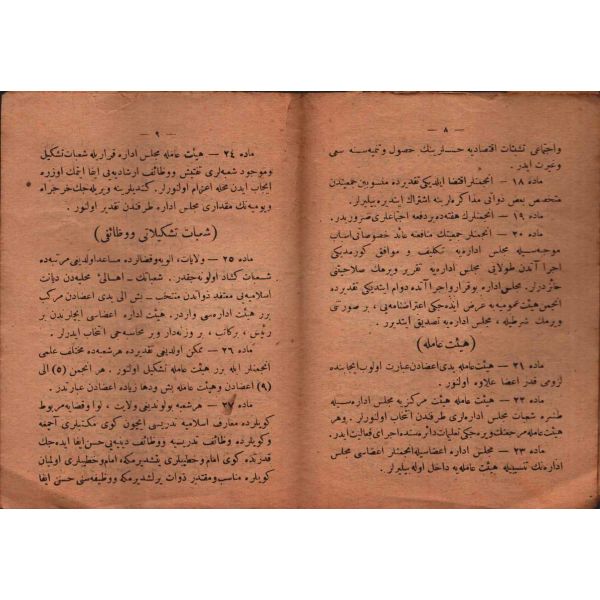 — ٨ —
واجتماعی تشبثات اقتصادیه حسلرینك حصول و تنمیه سنه سعی
وغیرت ایدر.
ماده ١٨ — انجمنلر اقتضا ایلدیکی تقدیرده منسوبین جمعیتدن
متخصص بعض ذواتی مذاکره لرینه اشتراك ایتدیره بیلیرلر.
ماده ١٩ — انجمنلرك هفته ده بر دفعه اجتماعلری ضروریدر.
ماده ٢٠ — انجمنلر جمعیتك منافعنه عائد خصوصاتی اسباب
موجبه سیله مجلس اداره یه تکلیف و موافق کورمدیکی
اجرا آتدن طولایی مجلس اداره یه تقریر ویرمك صلاحیتنی
حائزدرلر. مجلس اداره بو قرار و اجرا آتده دوام ایتدیکی تقدیرده
انجمن هیئت عمومیه یه عرض ایده جکی اعتراضنامه یی ، بر صورتنی
ویرمك شرطیله ، مجلس اداره یه تصدیق ایتدیرر .
(هیئت عامله)
ماده ٢١ — هیئت عامله یدی اعضادن عبارت اولوب ایجابنده
لزومی قدر اعضا علاوه اولنور.
ماده ٢٢ — هیئت عامله هیئت مرکزیه مجلس اداره سیله
طشره شعبات مجلس اداره لری طرفندن انتخاب اولنورلر. وهر
هیئت عامله مرجعنك ویره جکی تعلیمات دائره سنده اجرای فعالیت ایدر.
ماده ٢٣ — مجلس اداره اعضاسیله انجمنلر اعضاسی مجلس
اداره نك تنسیبیله هیئت عامله یه داخل اوله بیلیرلر.
— ٩ —
ماده ٢٤ — هیئت عامله مجلس اداره قراریله شعبات تشکیل
وموجود شعبه لری تفتیش ووظائف ارشادیه یی ایفا ایتمك اوزره
ایجاب ایدن محله اعزام اولنورلر. کندیلرینه ویریله جك خرجراه
ویومیه نك مقداری مجلس اداره طرفندن تقدیر اولنور.
(شعبات تشکیلاتی ووظائفی)
ماده ٢٥ — ولایات، الویه وقضالرده مساعد اولدیغی مرتبه ده
شعبات کشاد اولونه جقدر. شعباتك — اهالیٔ محلیه دن دیانت
اسلامیه یی معتقد ذواتدن منتخب — بش الی یدی اعضادن مرکب
برر هیئت اداره سی واردر. هیئت اداره اعضاسی ایچلرندن بر
رئیس ، بر کاتب ، بر وزنه دار و بر محاسبه جی انتخاب ایدرلر .
ماده ٢٦ — ممکن اولدیغی تقدیرده هر شعبه ده مختلف علمی
انجمنلر ایله برر هیئت عامله تشکیل اولنور . هر انجمن (٥) الی
(٩) اعضادن و هیئت عامله بش ودها زیاده اعضادن عبارتدر.
ماده ٢٧ — هر شعبه بولوندیغی ولایت ، لوا وقضایه مربوط
کویلرده معارف اسلامیه تدریسی ایچون کوی مکتبلری آچمغه
و کویلرده وظائف تدریسیه ووظائف دینیه یی حسن ایفا ایده جك
قدرتده کوی امام وخطیبلری یتشدیرمکه، امام وخطیبلری اولمیان
کویلره مناسب ومقتدر ذوات یرلشدیرمکه ووظیفه سنی حسن ایفا